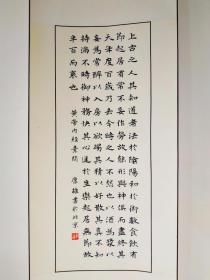 上古之人其知道者法於陰陽和於術數食飲有
節起居有常不妄作勞故能形與神俱而盡終其
天年度百歲乃去今之人不然也以酒為漿以
妄為常醉以入房以欲竭其精以好散其真不知
持滿不時御神務快其心逆於生樂起居無節故
半百而衰也
黃帝內經素問
雄書於北京